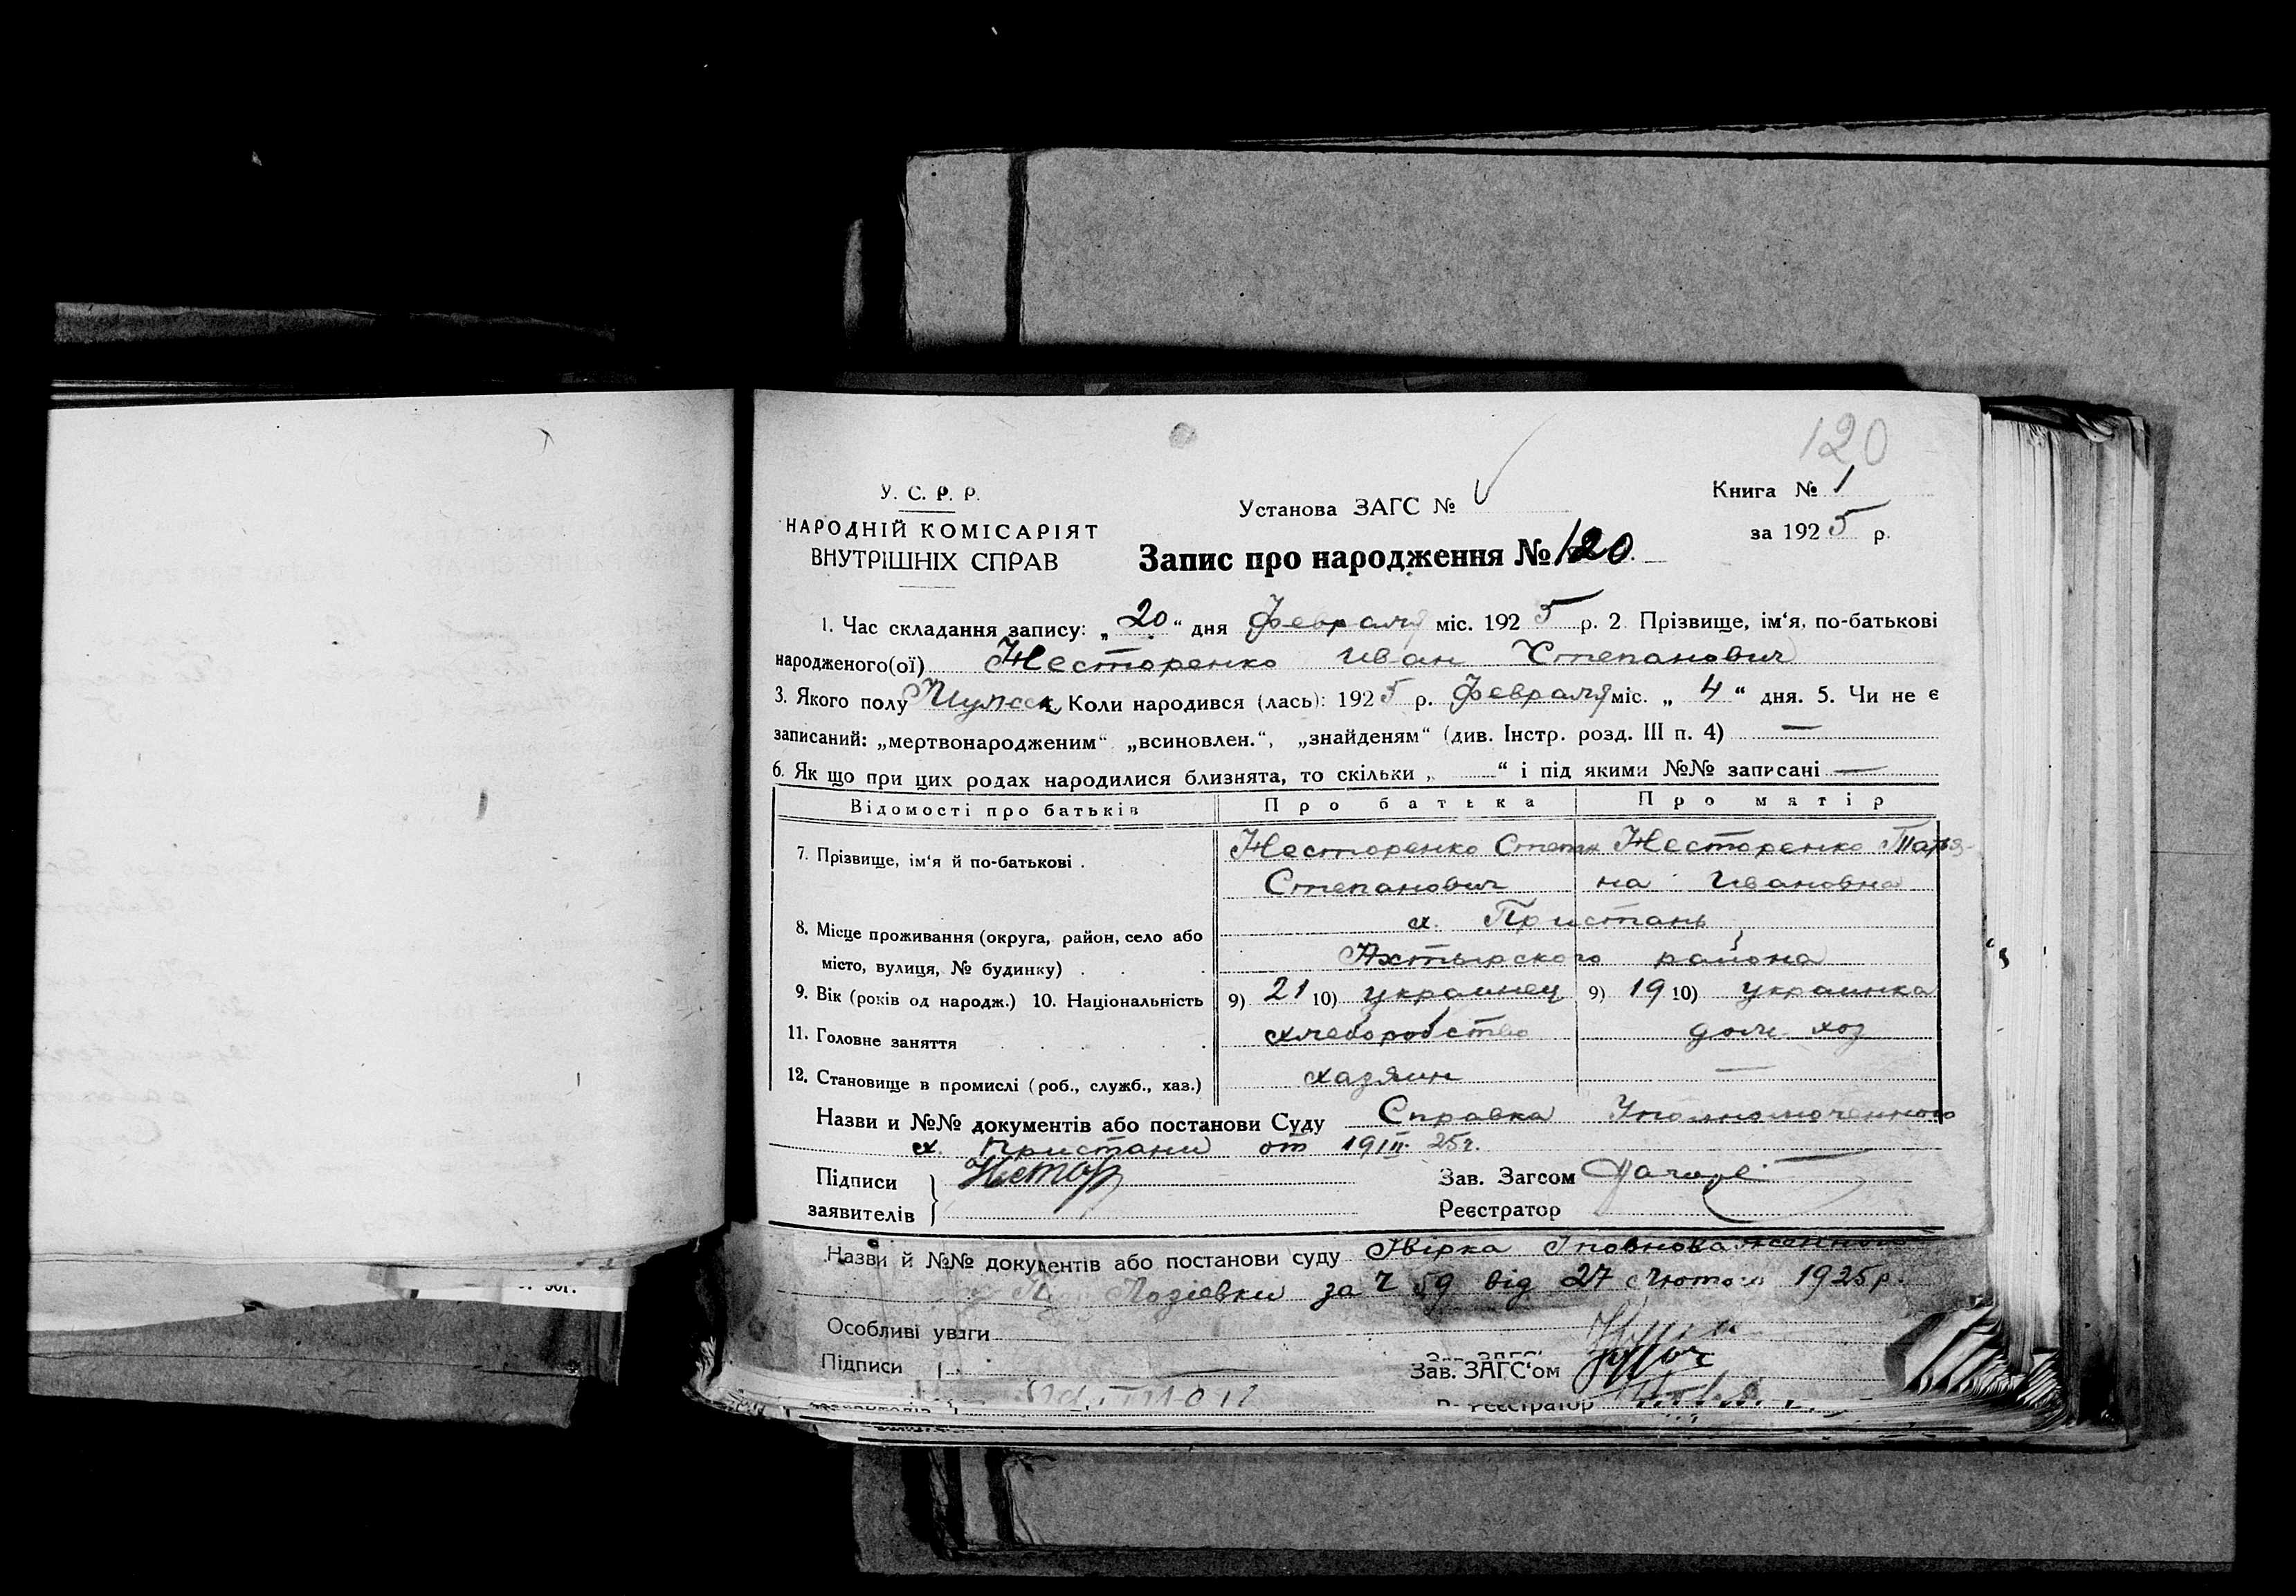 120
У. С. Р. Р.
НАРОДНІЙ КОМІСАРІЯТ
ВНУТРІШНІХ СПРАВ
Установа ЗАГС №
Книга № 1
за 1925 р.
Запис про народження № 120
1. Час складання запису: „20“ дня Февраля міс. 1925 р. 2 Прізвище, ім‘я, по-батькові
народженого(ої) Несторенко Иван Степанович
3. Якого полу Мужск. Коли народився (лась): 1925 р. Февраля міс. „ 4 “ дня. 5. Чи не є
записаний: „мертвонародженим“ „всиновлен.“, „знайденям“ (див. Інстр. розд. III п. 4) —
6. Як що при цих родах народилися близнята, то скільки „ “ і під якими №№ записані —
Відомості про батьків Про батька Про матір
7. Прізвище, ім‘я й по-батькові . Несторенко Степан Несторенко Татья-
Степанович на Ивановна
х. Пристань
8. Місце проживання (округа, район, село або
місто, вулиця, № будинку) . . . Ахтырского района
9. Вік (років од народж.) 10. Національність 9) 21 10) украинец 9) 19 10) украинка
11. Головне заняття хлеборобство дом. хоз
12. Становище в промислі (роб., служб., хаз.) хазяин —
Назви и №№ документів або постанови Суду Справка Уполномоченного
х. Пристани от 19 II 25 г.
Підписи
заявителів
Нестор
Зав. Загсом
Реєстратор
Назви й №№ документів або постанови суду Звірка Уповноваженного
Лозіевки за Ч 59 від 27 Лютого 1925 р.
Особливі уваги
Підписи
Зав. ЗАГС‘ом
Реєстратор